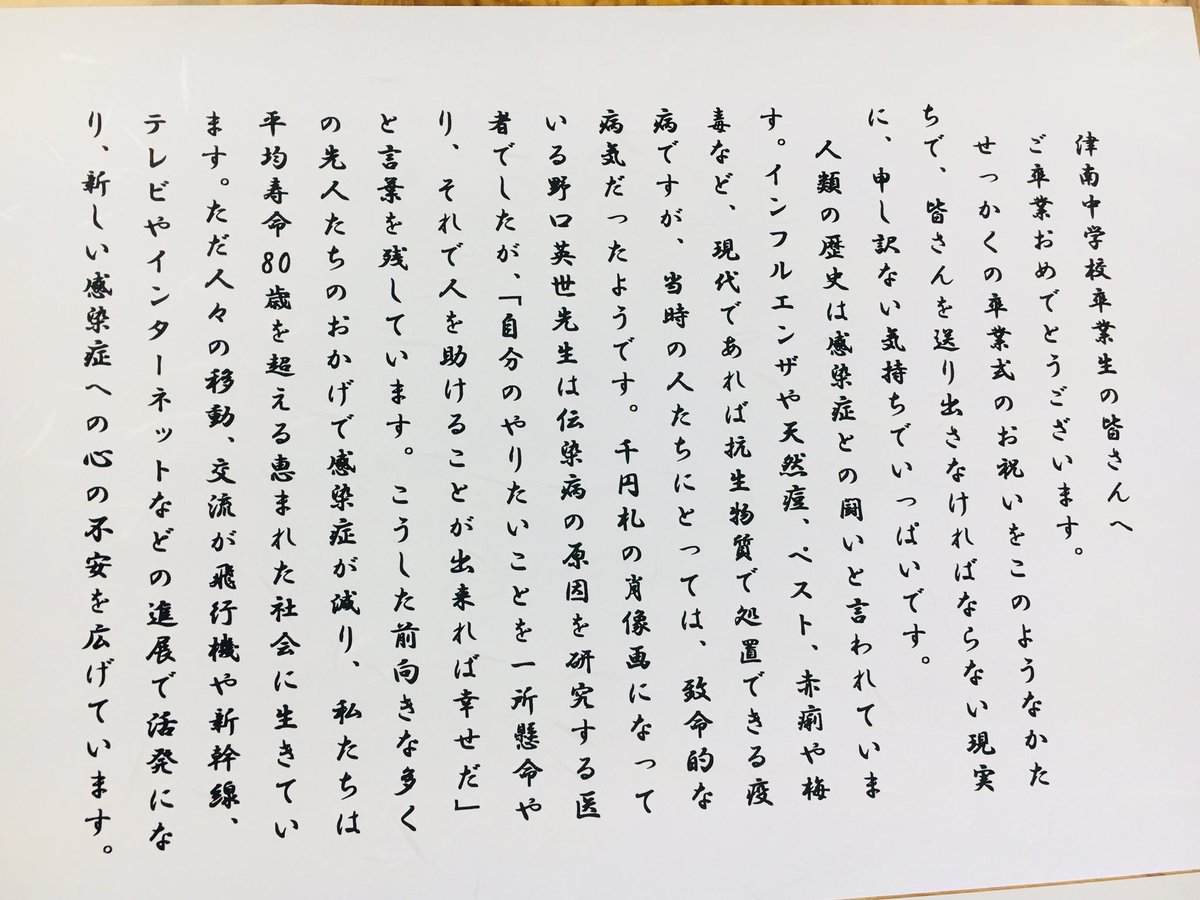 津南中学校卒業生の皆さんへ
ご卒業おめでとうございます。
せっかくの卒業式のお祝いをこのようなかた
ちで、皆さんを送り出さなければならない現実
に、申し訳ない気持ちでいっぱいです。
人類の歴史は感染症との闘いと言われていま
す。インフルエンザや天然痘、ペスト、赤痢や梅
毒など、現代であれば抗生物質で処置できる疫
病ですが、当時の人たちにとっては、致命的な
病気だったようです。千円札の肖像画になって
いる野口英世先生は伝染病の原因を研究する医
者でしたが、「自分のやりたいことを一所懸命や
り、それで人を助けることが出来れば幸せだ」
と言葉を残しています。こうした前向きな多く
の先人たちのおかげで感染症が減り、私たちは
平均寿命80歳を超える恵まれた社会に生きてい
ます。ただ人々の移動、交流が飛行機や新幹線、
テレビやインターネットなどの進展で活発にな
り、新しい感染症への心の不安を広げています。